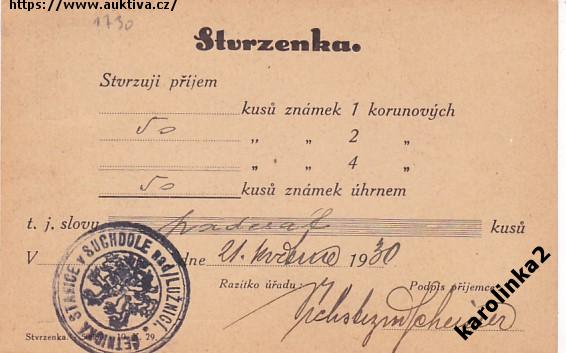 https://www.auktiva.cz/
1730
Stvrzenka.
Stvrzuji příjem
kusů známek 1 korunových
50 „ „ 2 „
„ „ 4 „
50 kusů známek úhrnem
t. j. slovy padesát kusů
V dne 21. května 1930
Razítko úřadu: Podpis příjemce:
ČETNICKÁ STANICE v SUCHDOLE nad LUŽNICÍ.
Stvrzenka. 29.
karolinka2